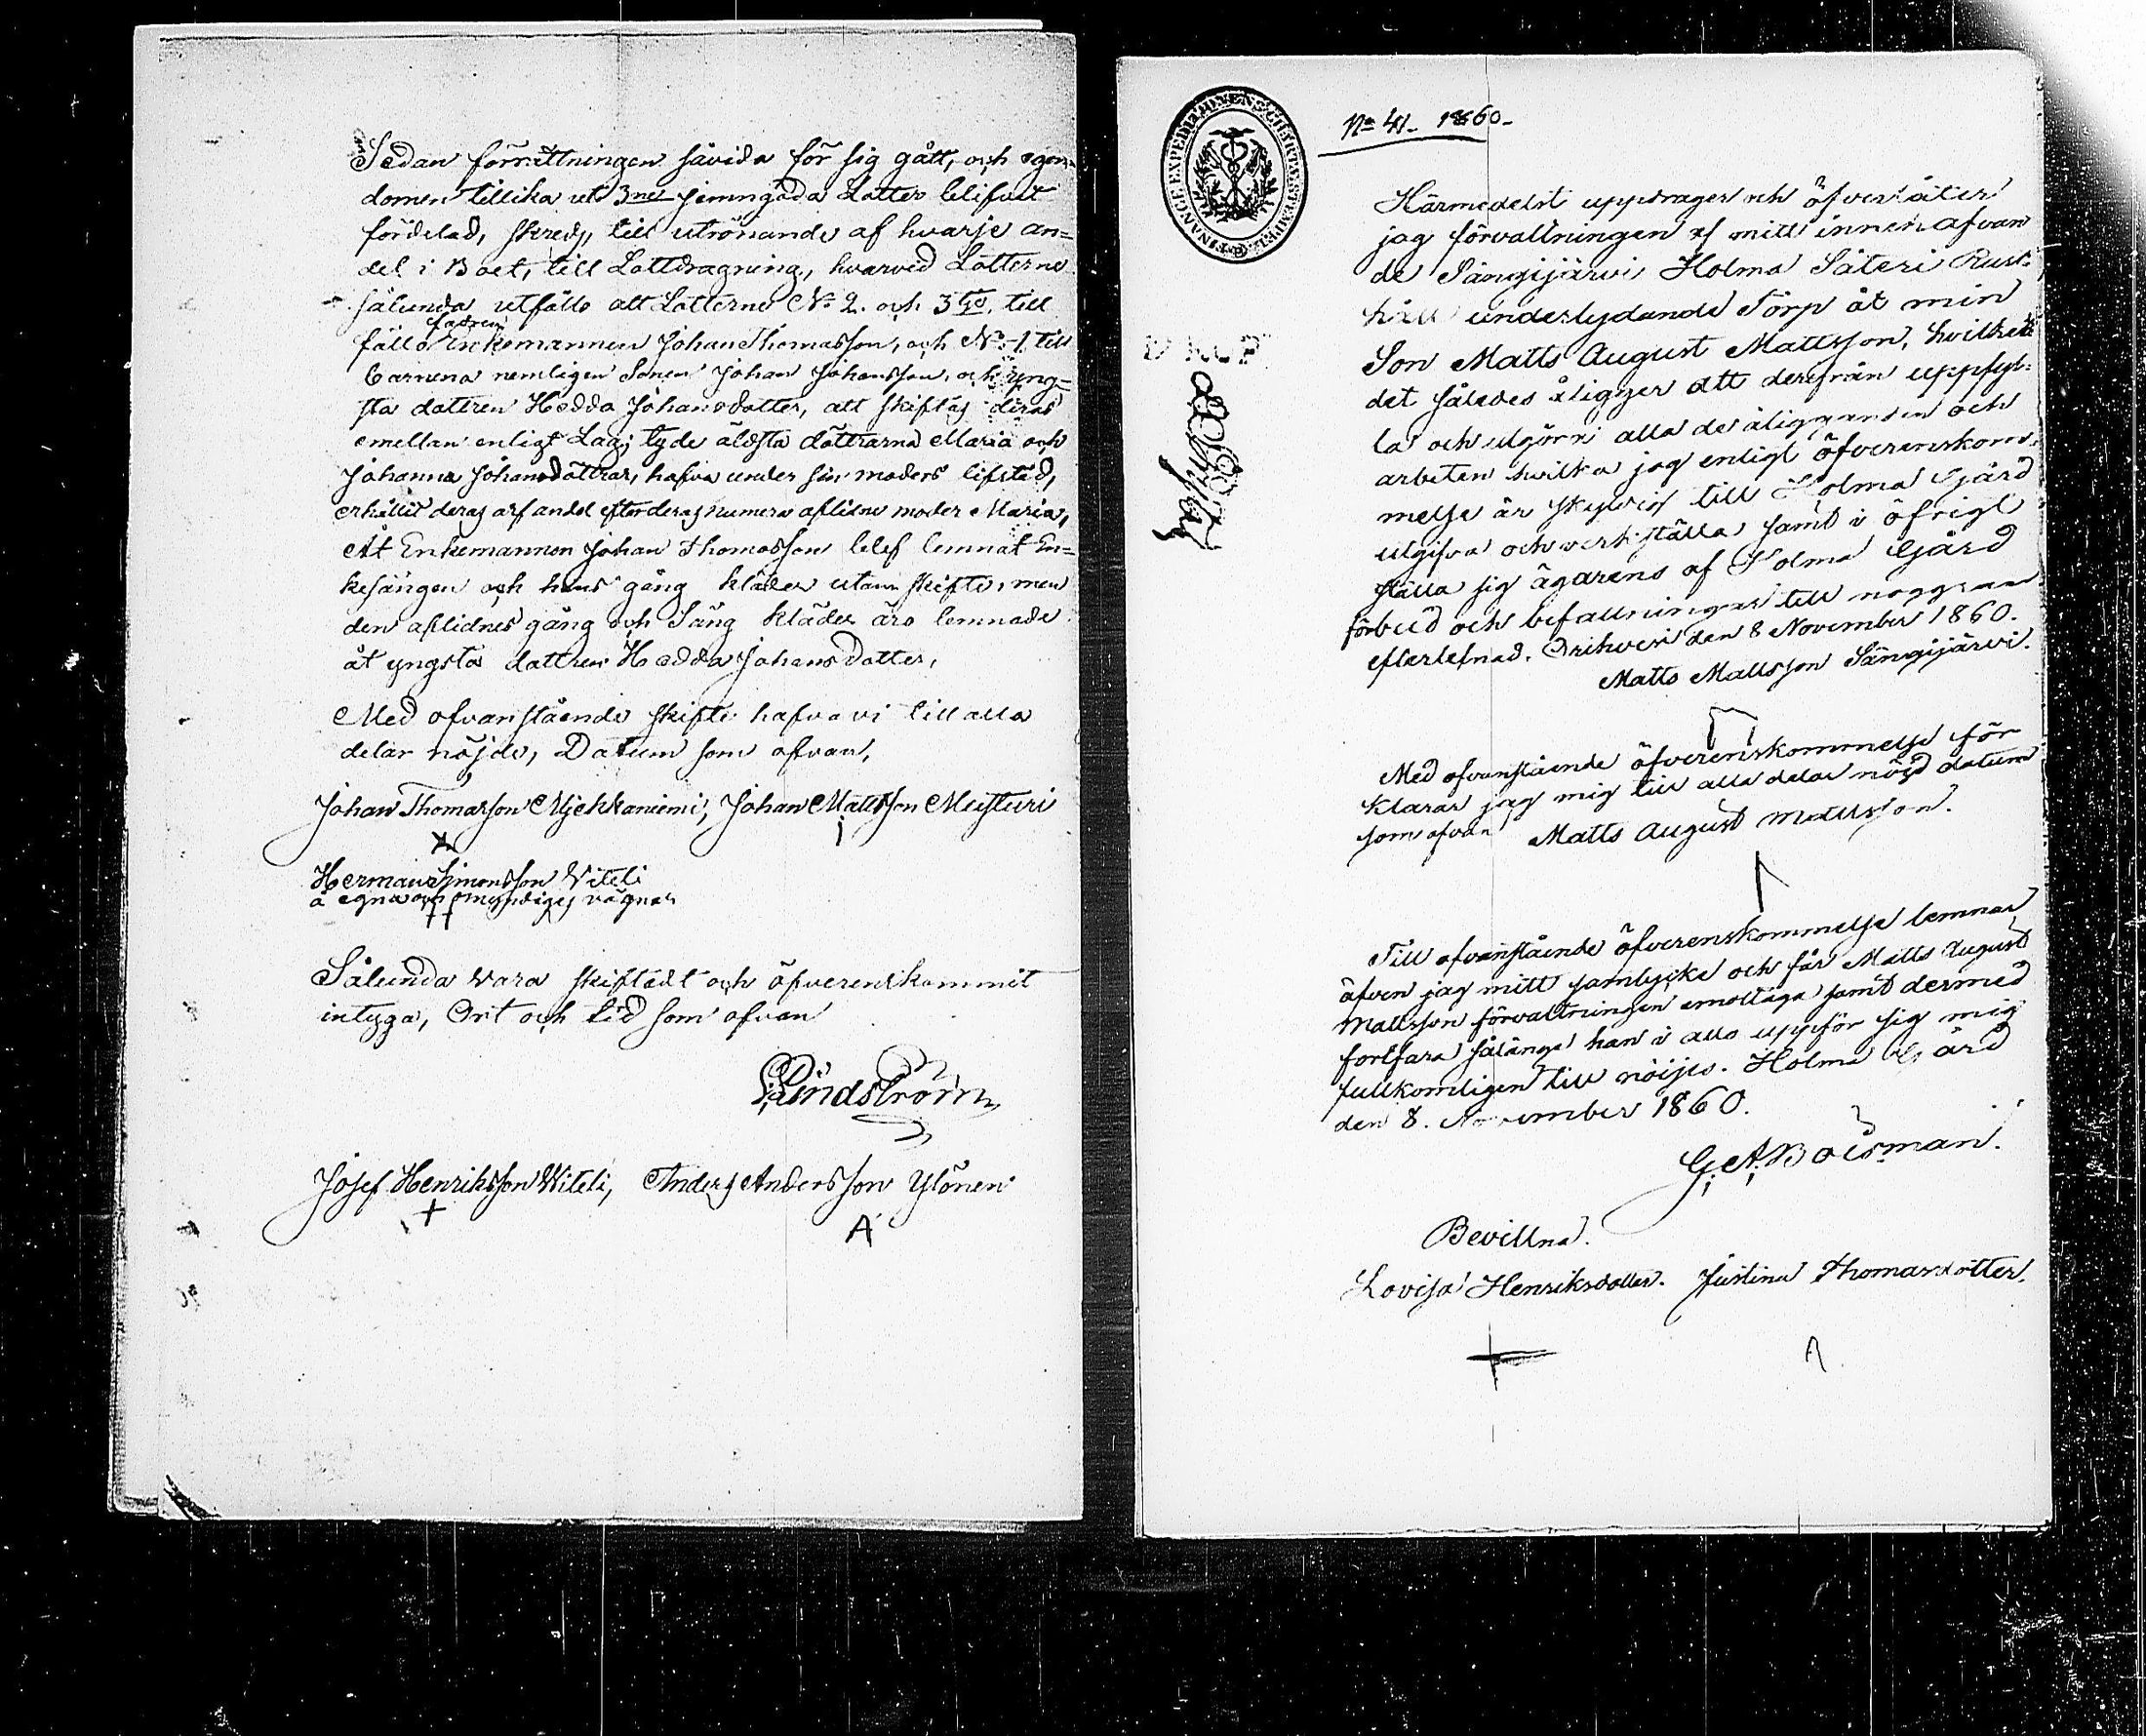 Sedan förrättningen såvida för sig gått, och egen=
domen tillika ut 3ne jemngoda Lotter blifvit
fördelad, skreds, till utrönande af hvarje an=
del i Boet, till Lottdragning, hvarved Lotterne
sålunda utföllo att Lotterne No 2. och 3tio, till
fadren
föllo Enkemannen Johan Thomasson, och No 1 till
barnena nemligen Sonen Johan Johansson, och yng=
sta dottren Hedda Johansdotter, att skiftas deras
emellan enligt Lag; tyde äldsta döttrarna Maria och
Johanna Johansdöttrar, hafva under sin moders lifstid,
erhållit deras arfandel efter deras numera aflidne moder Maria,
Åt Enkemannen Johan Thomasson blef lemnat En=
kesängen och hans gång kläder utan skifte, men
den aflidnes gång och Säng kläder äro lemnade
åt yngsta dottren Hedda Johans Dotter,
Med ofvanstående skifte hafva vi till alla
delar nöjde, Datum som ofvan,
Johan Thomasson Mjehkaniemi, Johan Mattsson Musturi
Herman Simonsson Viteli
å egna och omyndiges vägnar
Sålunda vara skiftadt och öfverenskommit
intyga, Ort och tid som ofvan
Lindström
Josef Henriksson Witeli, Anders Andersson Ylönen
A
FINANCE EXPEDITIONENS CHARTÆ STEMPEL
No 41. 1860.
Härmedelst uppdrager och öfverlåter
jag förvaltningen af mitt innehafvan
de Sängijärvi Holma Säteri Rust=
håll underlydande Torp åt min
Son Matts August Mattsson, hvilket
det således åligger att derifrån uppfyl=
la och utgöra alla de åligganden och
arbeten hvilka jag enligt öfverenskom=
melse är skyldig till Holma Gård
utgifva och verkställa samt i öfrigt
ställa sig ägarens af Holma Gård
förbud och befallningar till noggrann
efterlefnad. Orihveri den 8 November 1860.
Matts Mattsson Sängijärvi.
Med ofvanstående öfverenskommelse för
klarar jag mig till alla delar nöjd datum
som ofvan Matts August Mattsson.
Till ofvanstående öfverenskommelse lemnar
äfven jag mitt samtycke och får Matts August
Mattsson förvaltningen emottaga samt dermed
fortfara sålänge han i allo uppför sig mig
fullkomligen till nöijes. Holma Gård
den 8. November 1860.
G. A. Boisman.
Bevittna.
Lovisa Henriksdotter. Justina Thomasdotter.